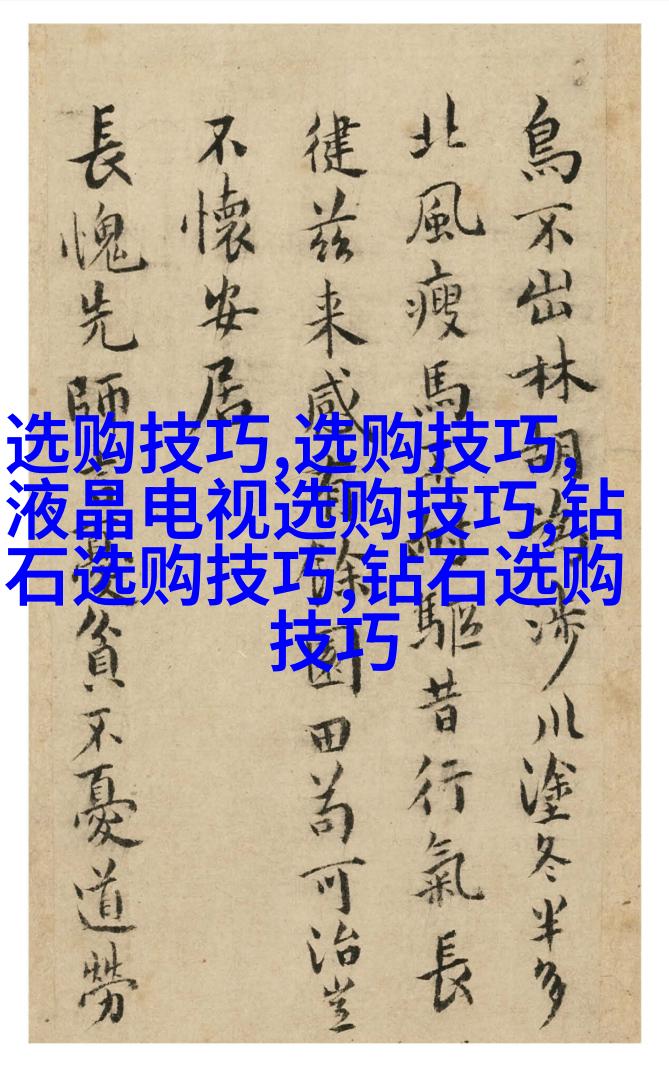 鳥不出林胡涉川塗冬半多
北風瘦馬驅昔行氣長
徤茲来感有餘園田苟可治豈
不懷安居
長愧先師言憂貧不憂道勞
选购技巧,选购技巧,
液晶电视选购技巧,钻
石选购技巧,钻石选购
技巧